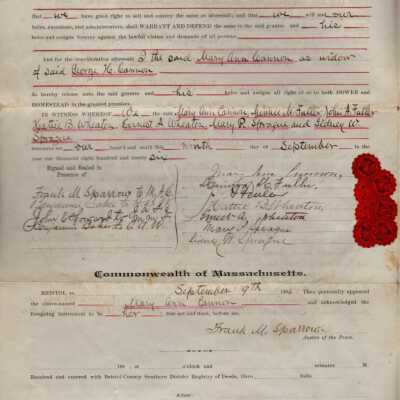 that we have good right to sell and convey the same as aforesaid; and that we will and our
heirs, executors, and administrators, shall WARRANT AND DEFEND the same to the said grantee and his
heirs and assigns forever against the lawful claims and demands of all persons,
And for the consideration aforesaid I the said Mary Ann Cannon as widow
of said George H. Cannon
do hereby release unto the said grantee and his heirs and assigns all right of or to both DOWER and
HOMESTEAD in the granted premises.
IN WITNESS WHEREOF We the said Mary Ann Cannon, M. Fuller, John A. Fuller
Hattie B. Wheaton, Earnest A. Wheaton, Mary P. Sprague and Sidney W.
Sprague
hereunto set our hand and seal this ninth day of September in the
year one thousand eight hundred and ninety
Signed and Sealed in
Presence of
Frank M. Sparrow to M.A.C.
Mary Ann Cannon,
Fuller,
Hattie B. Wheaton
A. Wheaton
Mary P. Sprague
W. Sprague
Commonwealth of Massachusetts.
BRISTOL, ss. September 9th 189 Then personally appeared
the above-named Mary Ann Cannon and acknowledged the
foregoing instrument to be her free act and deed, before me,
Frank M. Sparrow
Justice of the Peace.
189 , at o'clock and minutes M.
Received and entered with Bristol County Southern District Registry of Deeds, libro folio
Attest: